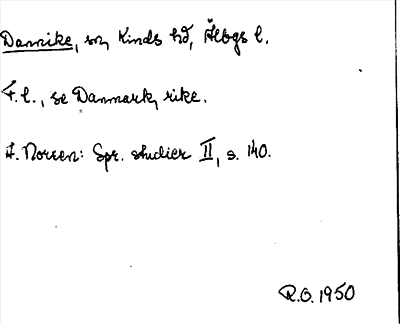 Dannike, sn, Kinds hd, Älvbgs l.
F.l., se Danmark, rike.
A. Noreen: Spr. studier II, s. 140.
R.O. 1950